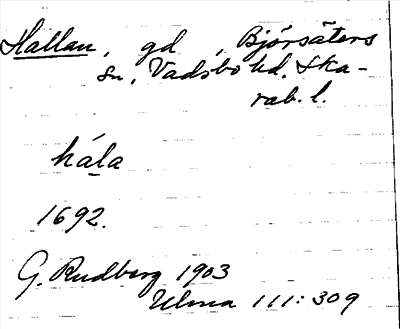 Hallan, gd, Bjórsäters
sn, Vadsbo hd. Ska-
rab. l.
håla
1692.
G. Rudberg 1903
111: 309